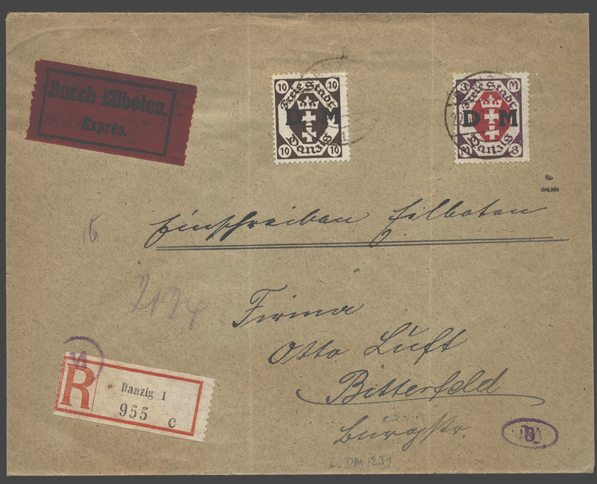 Durch Eilboten.
Exprés.
10 10
Freie Stadt
D M
Danzig
10 10
M
Freie Stadt
D M
Danzig
3
Einschreiben Eilboten
16
Firma
Otto Luft
Bitterfeld
Burgstr.
R
Danzig 1
955 c
DM